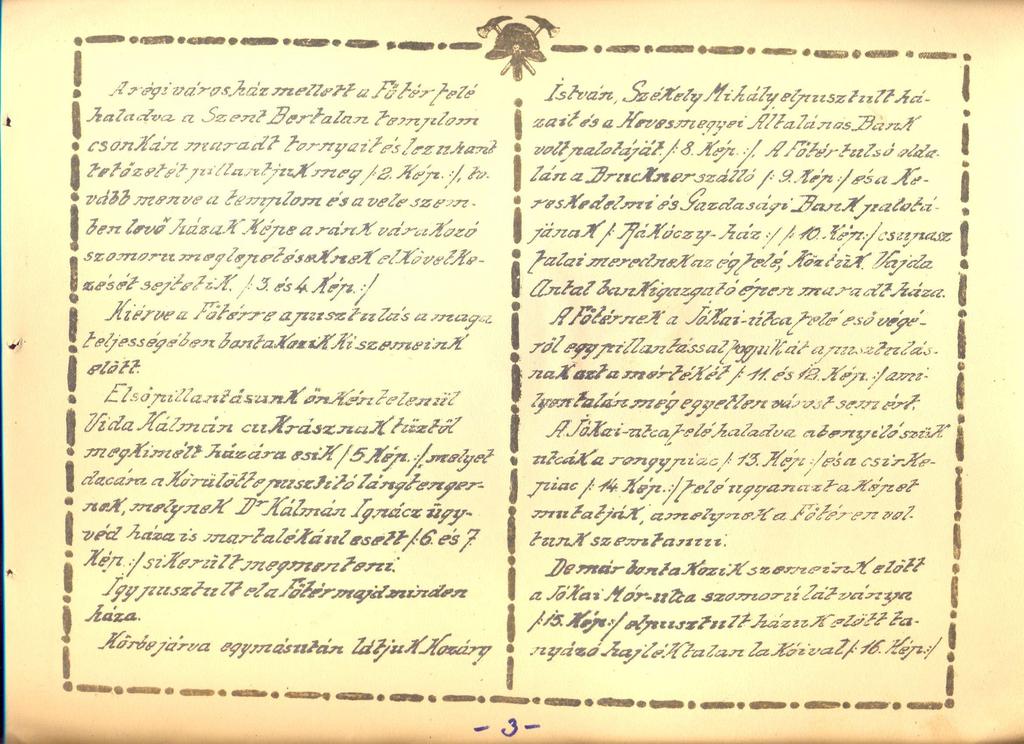 A régi városház mellett a Főtér felé
haladva a Szent Bertalan templom
csonkán maradt tornyait és lezuhant
tetőzetét pillantjuk meg /:2. Kép.:/, to-
vább menve a templom és a vele szem-
ben levő házak képe a ránk várakozó
szomorú meglepetéseknek elkövetke-
zését sejtetik. /:3. és 4. Kép.:/
Kiérve a Főtérre a pusztulás a maga
teljességében bontakozik ki szemeink
előtt.
Első pillantásunk önkéntelenül
Vida Kálmán cukrásznak tűztől
megkimélt házára esik /:5. Kép.:/, melyet
dacára a körülötte pusztító lángtenger-
nek, melynek Dr Kálmán Ignácz ügy-
véd háza is martalékául esett /:6. és 7.
Kép.:/ sikerült megmenteni.
Így pusztult el a Főtér majd minden
háza.
Körbe járva egymásután látjuk Kozáry
István, Székely Mihály elpusztult há-
zait és a Hevesmegyei Általános Bank
volt palotáját /:8. Kép.:/. A Főtér tulsó olda-
lán a Bruckner szálló /:9. Kép:/ és a Ke-
reskedelmi és Gazdasági Bank palotá-
jának /:Rákóczy-ház:/ /:10. Kép:/ csupasz
falai merednek az ég felé, köztük Vajda
Antal bankigazgató épen maradt háza.
A Főtérnek a Jókai-utca felé eső végé-
ről egy pillantással fogjuk át a pusztulás-
nak azt a mértékét /:11. és 12. Kép.:/ ami-
lyen talán még egyetlen várost sem ért.
A Jókai-utca felé haladva a benyiló szük
utcák a rongypiac /:13. Kép.:/ és a csirke-
piac /:14. Kép.:/ felé ugyanazt a képet
mutatják, amelynek a Főtéren vol-
tunk szemtanui.
De már bontakozik szemeink előtt
a Jókai Mór-utca szomorú látványa
/:15. Kép:/ elpusztult házuk előtt ta-
nyázó hajléktalan lakóival /:16. Kép:/
- 3 -